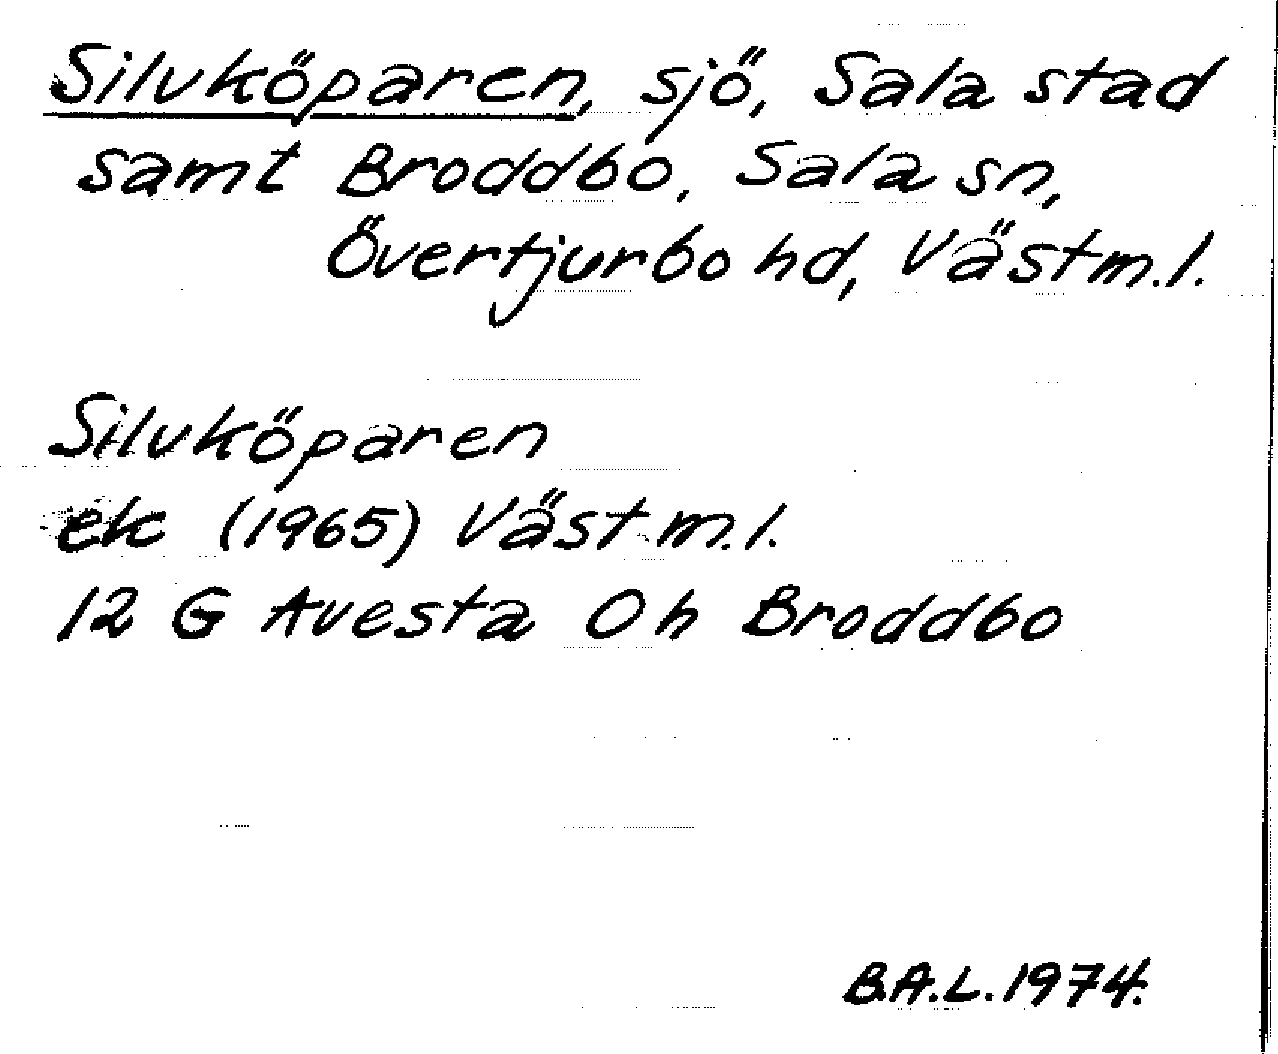 Silvköparen, sjö, Sala stad
samt Broddbo, Sala sn,
Övertjurbo hd, Västm.l.
Silvköparen
ek (1965) Västm.l.
12 G Avesta 0h Broddbo
B.A.L. 1974.